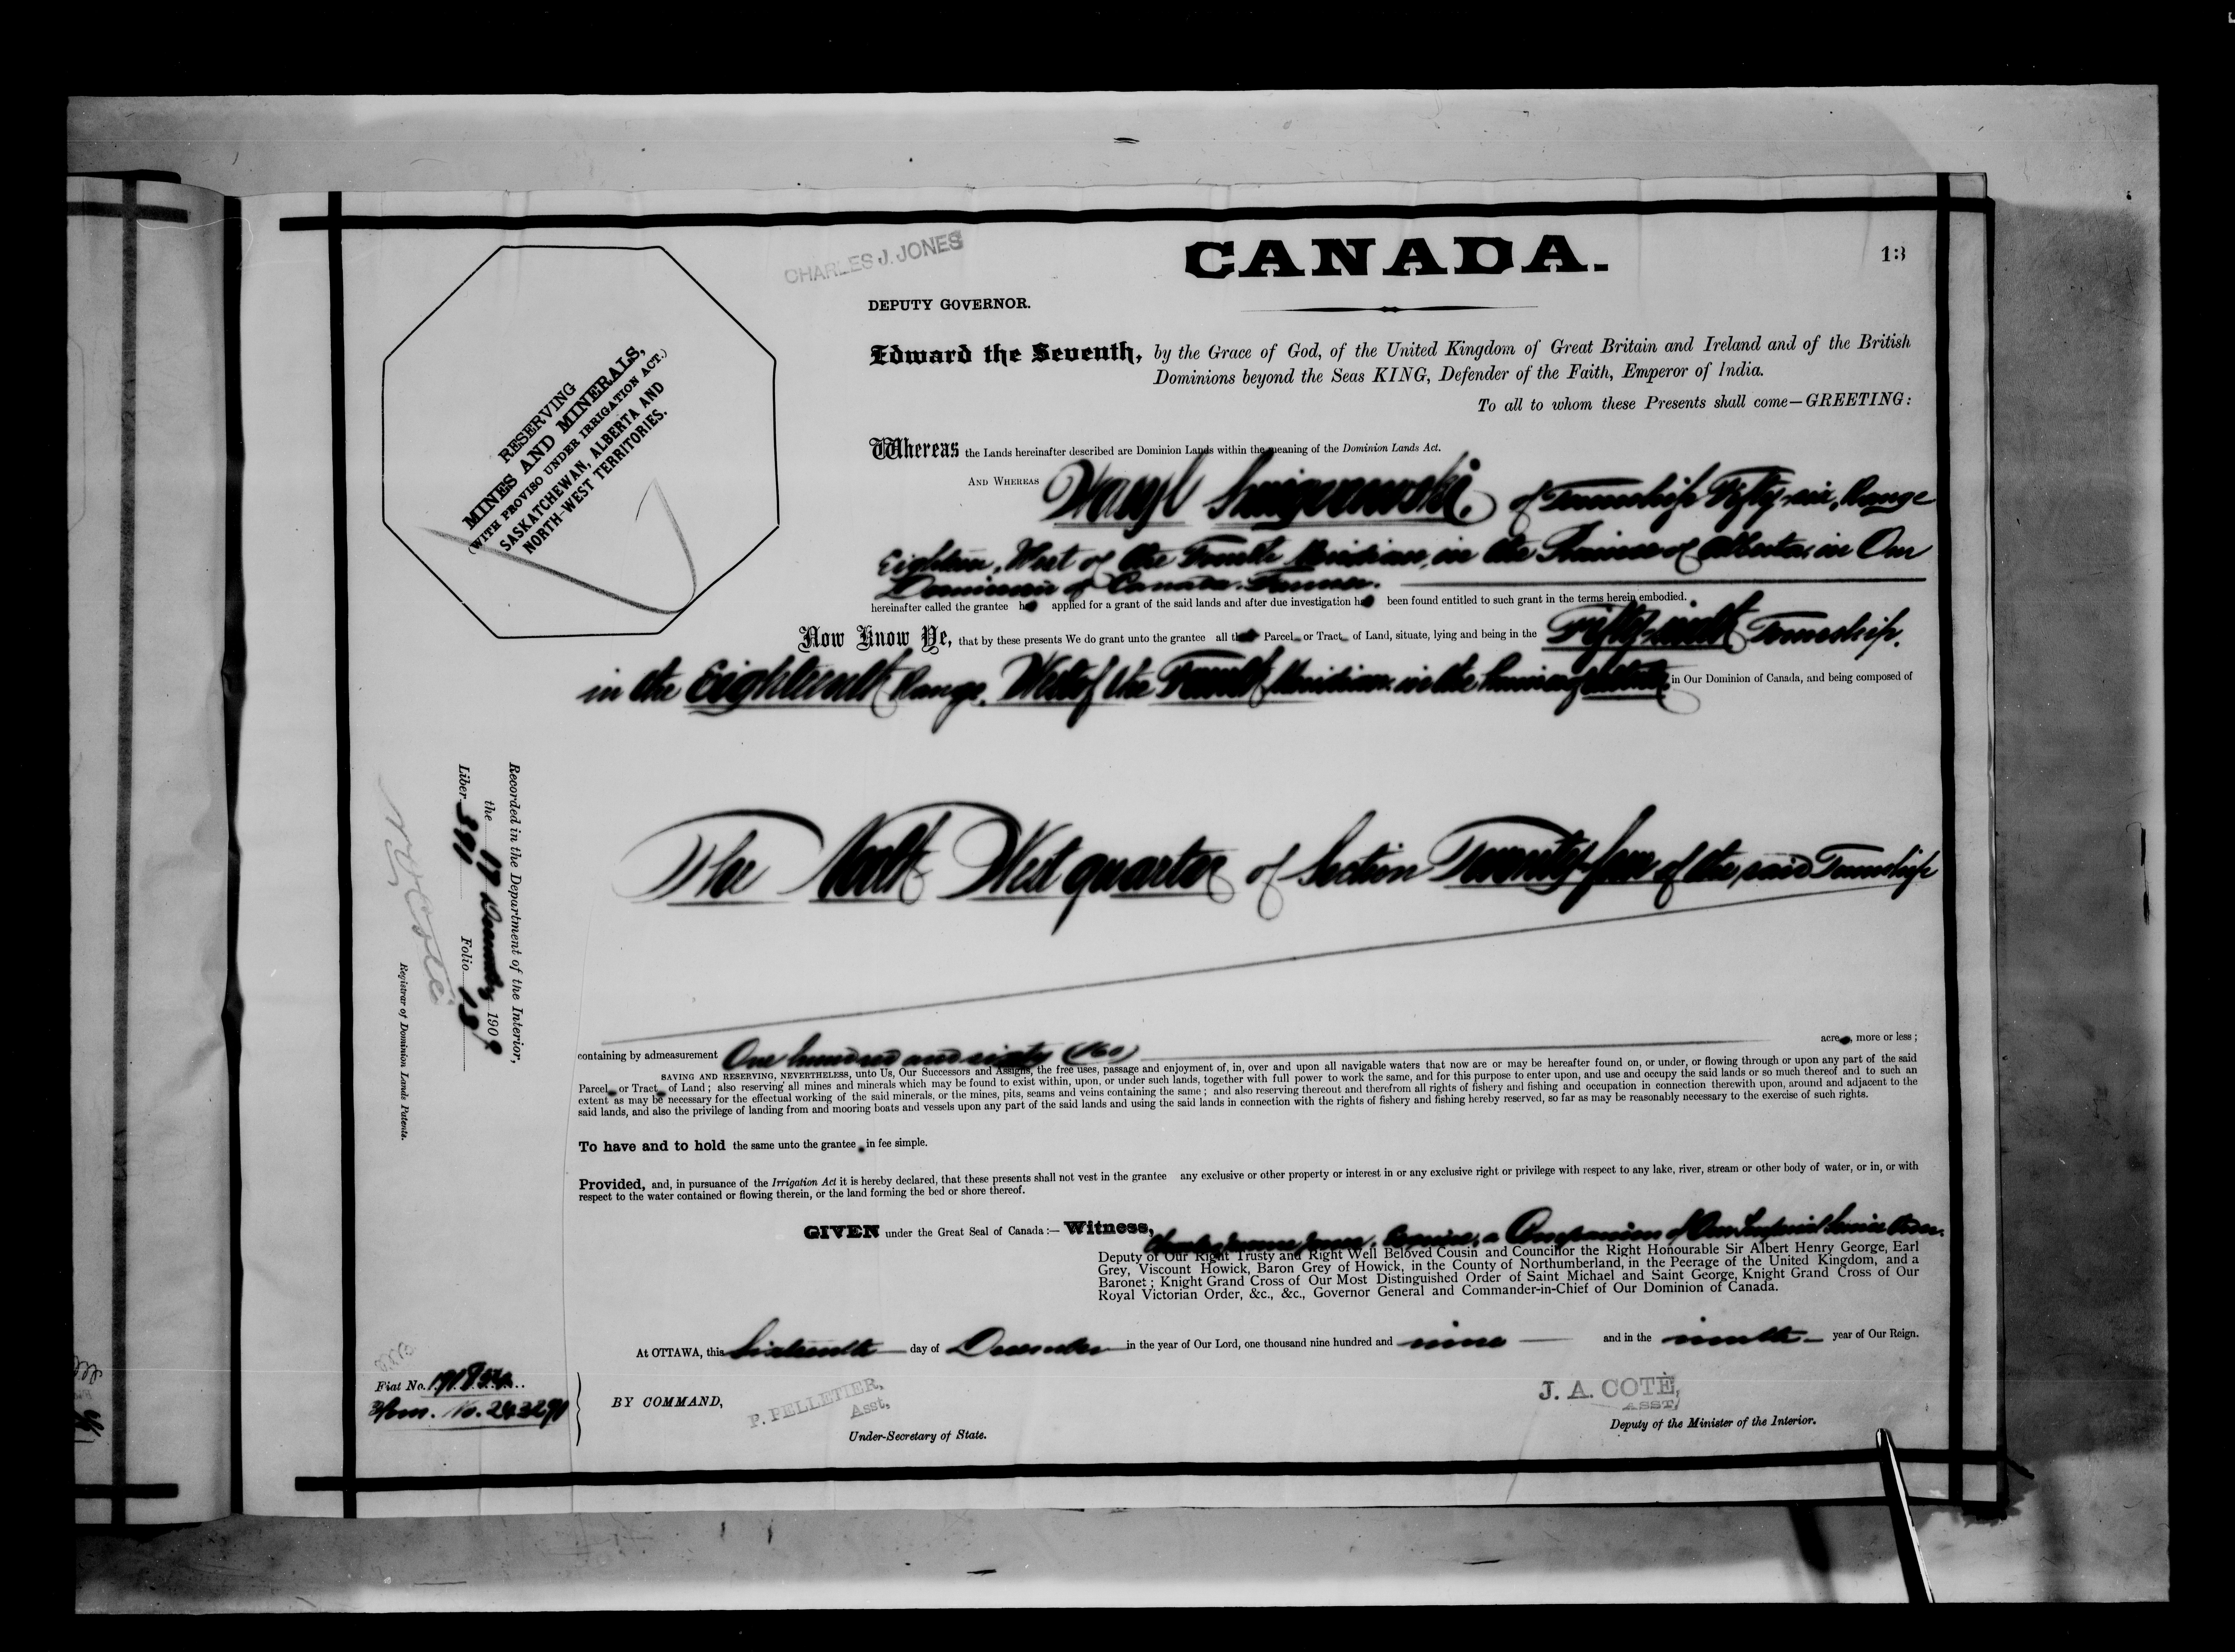 CANADA.
13
CHARLES J. JONES
DEPUTY GOVERNOR.
RESERVING
MINES AND MINERALS,
(WITH PROVISO UNDER IRRIGATION ACT.)
SASKATCHEWAN, ALBERTA AND
NORTH-WEST TERRITORIES.
Edward the Seventh, by the Grace of God, of the United Kingdom of Great Britain and Ireland and of the British
Dominions beyond the Seas KING, Defender of the Faith, Emperor of India.
To all to whom these Presents shall come—GREETING:
Whereas the Lands hereinafter described are Dominion Lands within the meaning of the Dominion Lands Act.
AND WHEREAS Wasyl of Township Fifty-six, Range
Eighteen, West of the Fourth Meridian, in the Province of Alberta in Our
Dominion of Canada. Farmer.
hereinafter called the grantee has applied for a grant of the said lands and after due investigation has been found entitled to such grant in the terms herein embodied.
Now Know Ye, that by these presents We do grant unto the grantee all that Parcel or Tract of Land, situate, lying and being in the Fifty-sixth Township,
in the Eighteenth Range, West of the Fourth Meridian in the Province of Alberta in Our Dominion of Canada, and being composed of
The North West quarter of Section Twenty-four of the said Township
containing by admeasurement One hundred and sixty (160) acres, more or less;
SAVING AND RESERVING, NEVERTHELESS, unto Us, Our Successors and Assigns, the free uses, passage and enjoyment of, in, over and upon all navigable waters that now are or may be hereafter found on, or under, or flowing through or upon any part of the said
Parcel or Tract of Land; also reserving all mines and minerals which may be found to exist within, upon, or under such lands, together with full power to work the same, and for this purpose to enter upon, and use and occupy the said lands or so much thereof and to such an
extent as may be necessary for the effectual working of the said minerals, or the mines, pits, seams and veins containing the same; and also reserving thereout and therefrom all rights of fishery and fishing and occupation in connection therewith upon, around and adjacent to the
said lands, and also the privilege of landing from and mooring boats and vessels upon any part of the said lands and using the said lands in connection with the rights of fishery and fishing hereby reserved, so far as may be reasonably necessary to the exercise of such rights.
To have and to hold the same unto the grantee in fee simple.
Provided, and, in pursuance of the Irrigation Act it is hereby declared, that these presents shall not vest in the grantee any exclusive or other property or interest in or any exclusive right or privilege with respect to any lake, river, stream or other body of water, or in, or with
respect to the water contained or flowing therein, or the land forming the bed or shore thereof.
GIVEN under the Great Seal of Canada:— Witness, Charles Jones, Esquire, a Companion of Our Imperial Service Order,
Deputy of Our Right Trusty and Right Well Beloved Cousin and Councillor the Right Honourable Sir Albert Henry George, Earl
Grey, Viscount Howick, Baron Grey of Howick, in the County of Northumberland, in the Peerage of the United Kingdom, and a
Baronet; Knight Grand Cross of Our Most Distinguished Order of Saint Michael and Saint George, Knight Grand Cross of Our
Royal Victorian Order, &c., &c., Governor General and Commander-in-Chief of Our Dominion of Canada.
At OTTAWA, this Sixteenth day of December in the year of Our Lord, one thousand nine hundred and nine and in the ninth year of Our Reign.
BY COMMAND,
P. PELLETIER,
Asst,
Under-Secretary of State.
J. A. COTÉ,
ASST,
Deputy of the Minister of the Interior.
Recorded in the Department of the Interior,
the 17 December 1909
Liber 391 Folio 13
Registrar of Dominion Lands Patents.
Fiat No.
No. 243291